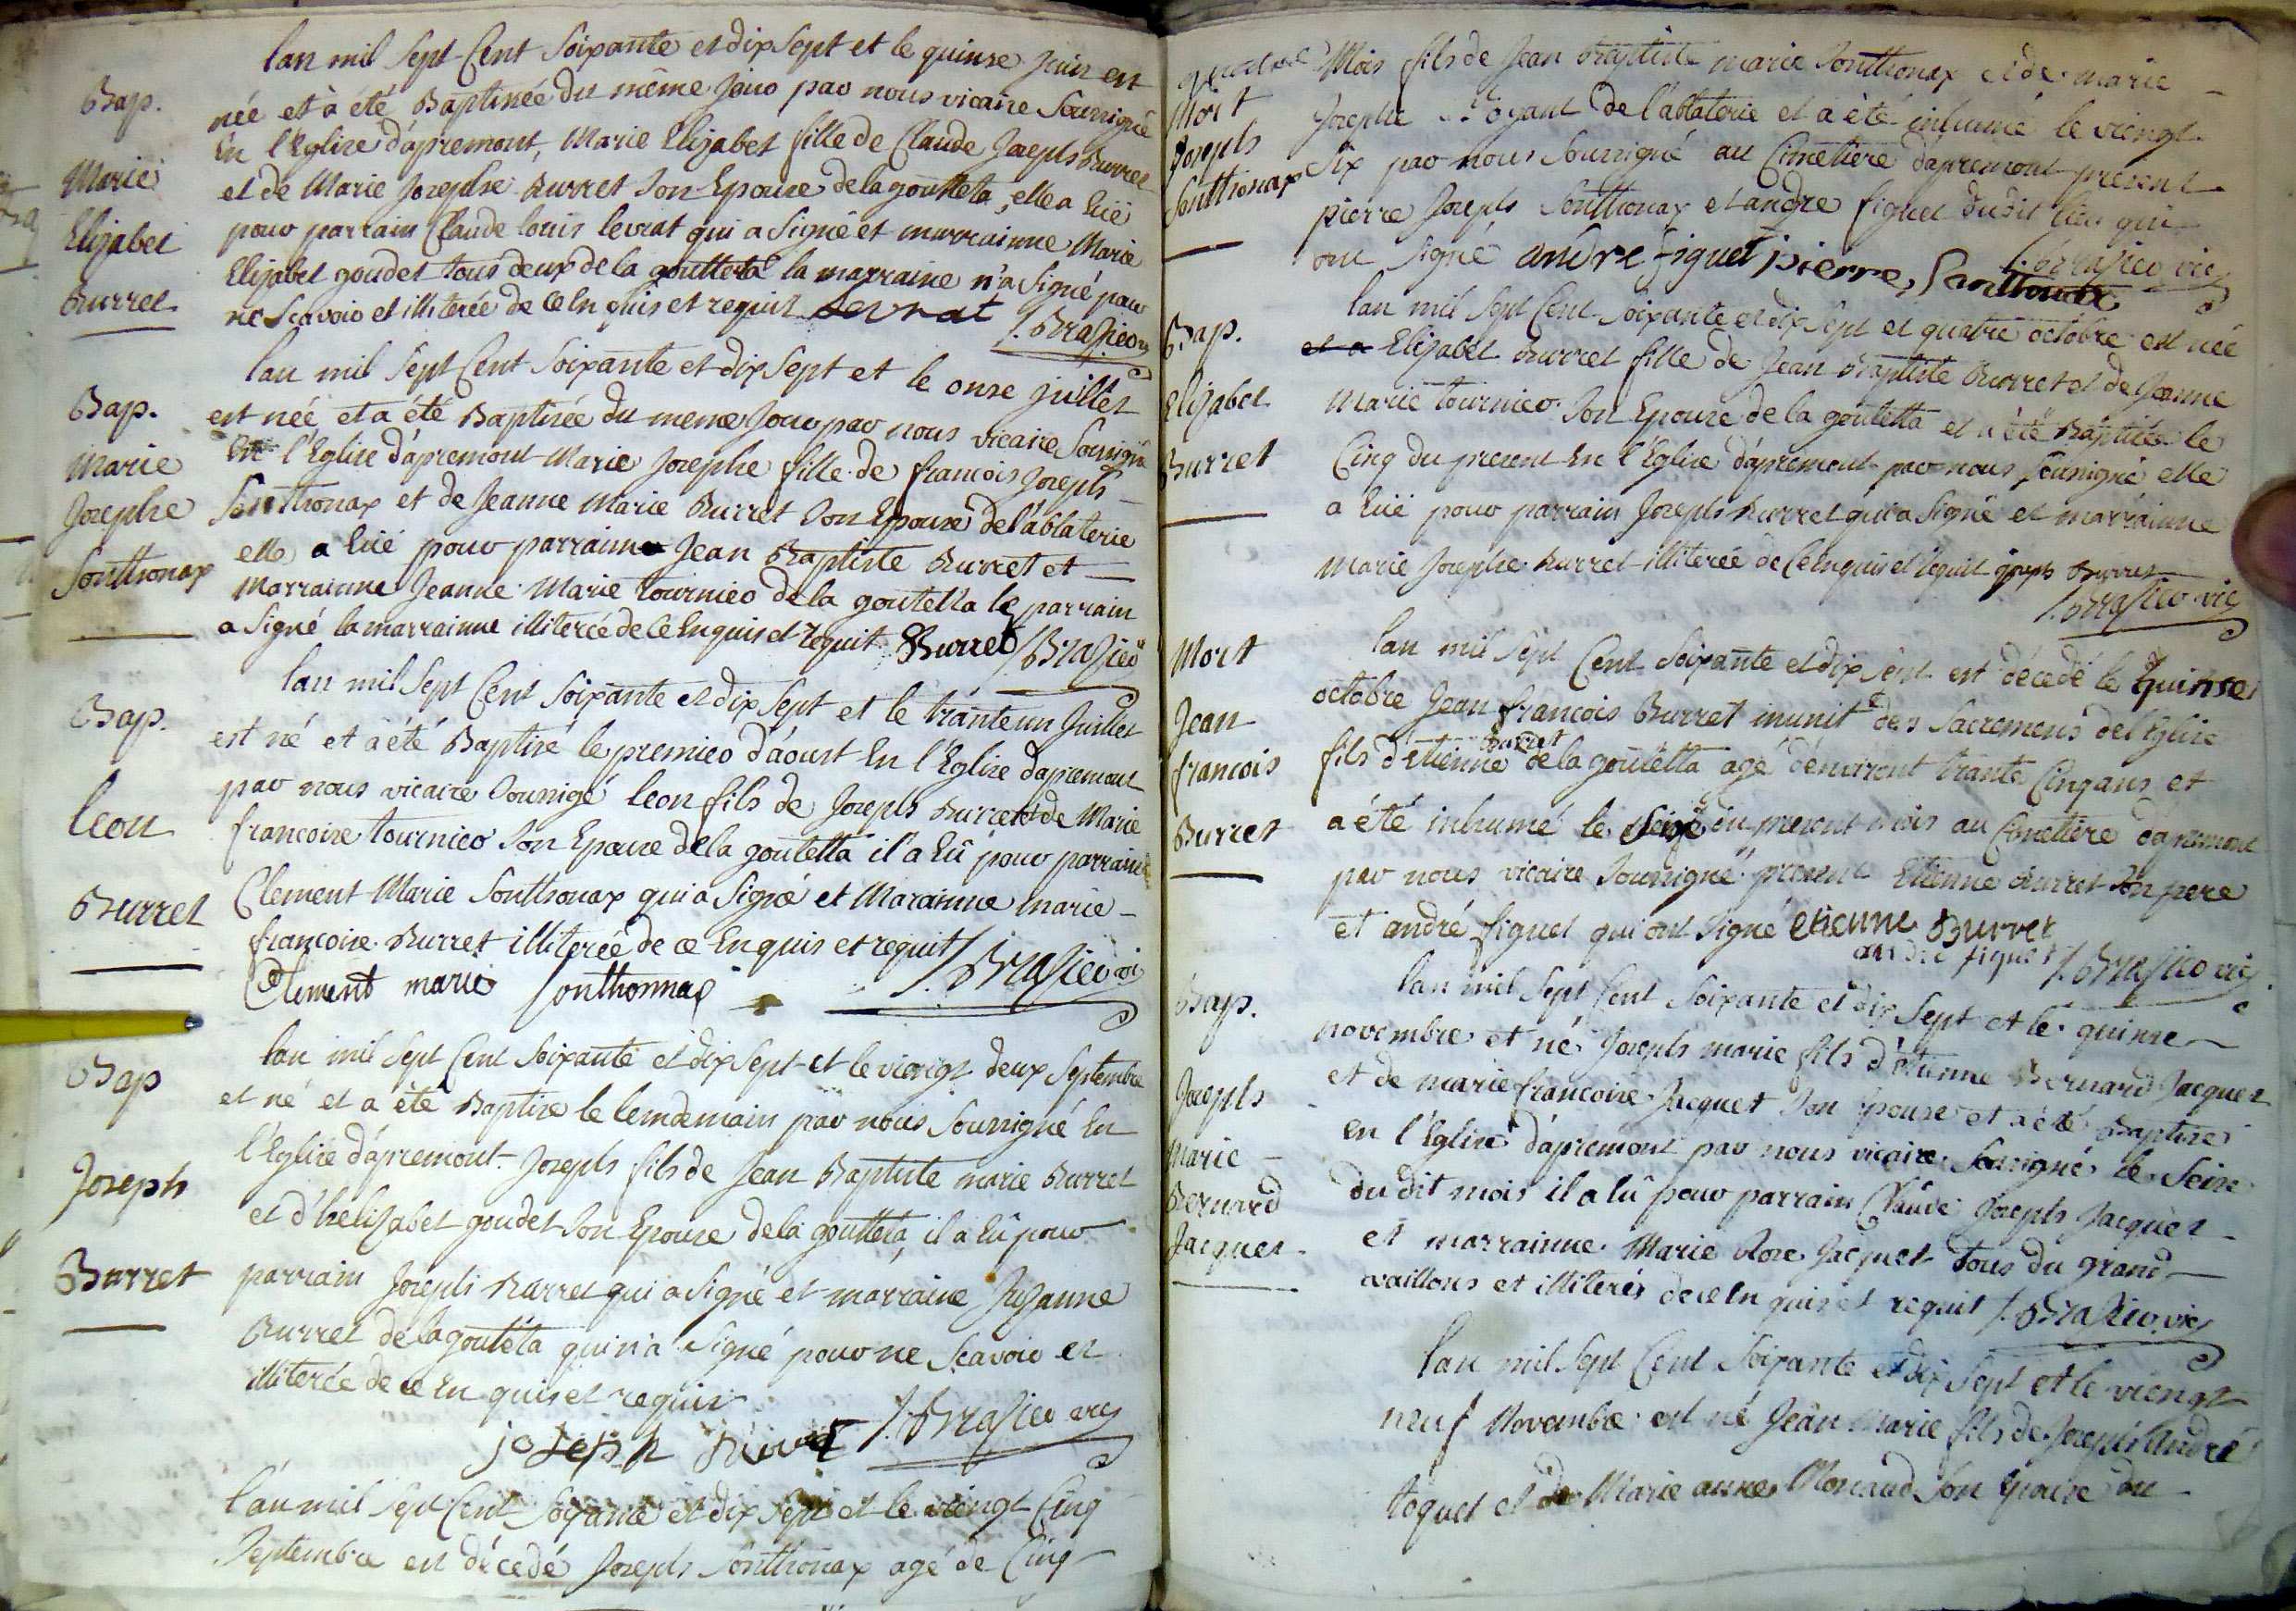 Bap.
Marie
Elizabet
Burret
lan mil Sept Cent Soixante et dix Sept et le quinse Juin est
née et à été Baptisée du même Jour par nous vicaire Soussigné
En l'Eglise d'apremont, Marie Elizabet fille de Claude Joseph Burret
et de Marie Josephe Burret Son Epouse de la goutteta, elle a Eüe
pour parrain Claude louis levrat qui a Signé et marrainne Marie
Elizabet goudet tous deux de la goutteta la marraine n'a Signé pour
ne Scavoir et illiterée de ce En quis et requis Levrat
J. Brasier
Bap.
Marie
Josephe
Sonthonax
lan mil Sept Cent Soixante et dix Sept et le onse juillet
est née et a été Baptisée du meme Jour par nous vicaire Soussigné
En l'Eglise d'apremont Marie Josephe fille de francois Joseph
Sonthonax et de Jeanne Marie Burret Son Epouse de l'ablaterie
elle a Eüe pour parrain Jean Baptiste Burret et
Marrainne Jeanne Marie tournier de la goutetta le parrain
a Signé la marrainne illiterée de ce Enquis et requit Burret J. Brasier
Bap.
leon
Burret
lan mil Sept Cent Soixante et dix Sept et le trante un Juillet
est né et à été Baptisé le premier d'aoust En l'Eglise d'apremont
par nous vicaire Soussigé leon fils de Joseph Burret et de Marie
francoise tournier Son Epouse de la goutetta il'a Eû pour parrain
Clement Marie Sonthonax qui a Signé et Marainne marie
francoise Burret illiterée de ce En quis et requit J. Brasier vic
Clement marie Sonthonnax
Bap
Joseph
Burret
lan mil Sept Cent Soixante et dix Sept et le viengt deux Septembre
et né et a été Baptise le lemdemain par nous Soussigné En
l'Eglise d'apremont Joseph fils de Jean Baptiste marie Burret
et d'helizabet goudet Son Epouse de la goutteta, il a Eû pour
parrain Joseph Burret qui a Signé et marraine Suzanne
Burret de la goutéta qui n'a Signé pour ne Scavoir et
illiterée de ce En quis et requis
joseph Burret J. Brasier vic
l'an mil Sept Cent Soixante et dix Sept et le viengt Cinq
Septembre est décedé Joseph Sonthonax agé de Cinq
Mort
Joseph
Sonthonax
Mois fils de Jean Baptiste marie Sonthonax et de marie
Josephe de l'ablaterie et a été inhumé le viengt
Six par nous Soussigné au Cimetiere d'apremont présent
pierre Joseph Sonthonax et andré figuet du dit lieu qui
ont Signé andre figuet pierre Santhonax
J. Brasier vic
Bap.
Elizabet
Burret
lan mil Sept Cent Soixante et dix Sept et quatre octobre est née
et a Elizabet Burret fille de Jean Baptiste Burret et de Jeanne
Marie tournier Son Epouse de la goutetta et a été Baptisée le
Cinq du present En l'Eglise d'apremont par nous Soussigné elle
a Eüe pour parrain Joseph Burret qui a Signé et marrainne
Marie Josephe Burret illiterée de Ce Enquis et requit joseph Burret
J. Brasier vic
Mort
Jean
francois
Burret
lan mil Sept Cent Soixante et dix Sept est décedé le quinse
octobre Jean francois Burret munit des Sacremens de l'Eglise
fils d'Etienne Burret de la goutetta agé d'environt trante Cinq ans et
a été inhumé le Seize du present mois au Cimetiere d'apremont
par nous vicaire Soussigné present Etienne Burret Son pere
et andré figuet qui ont Signé etienne Burret
andre figuet J. Brasier vic
Bap.
Joseph
Marie
Bernard
Jacquet
lan mil Sept Cent Soixante et dix Sept et le quinse
novembre et né Joseph marie fils d'étienne Bernard Jacquet
et de marie francoise Jacquet Son Epouse et a été Baptisé
en l'Eglise d'apremont par nous vicaire Soussigné le Seise
du dit mois il a Eû pour parrain Claude Joseph Jacquet
et marrainne Marie Rose Jacquet tous du grand
vaillons et illiterés de ce En quis et requit J. Brasier vic
lan mil Sept Cent Soixante et dix Sept et le viengt
neuf Novembre est né Jean Marie fils de Joseph André
toquet et de Marie anne Monaud Son Epouse du